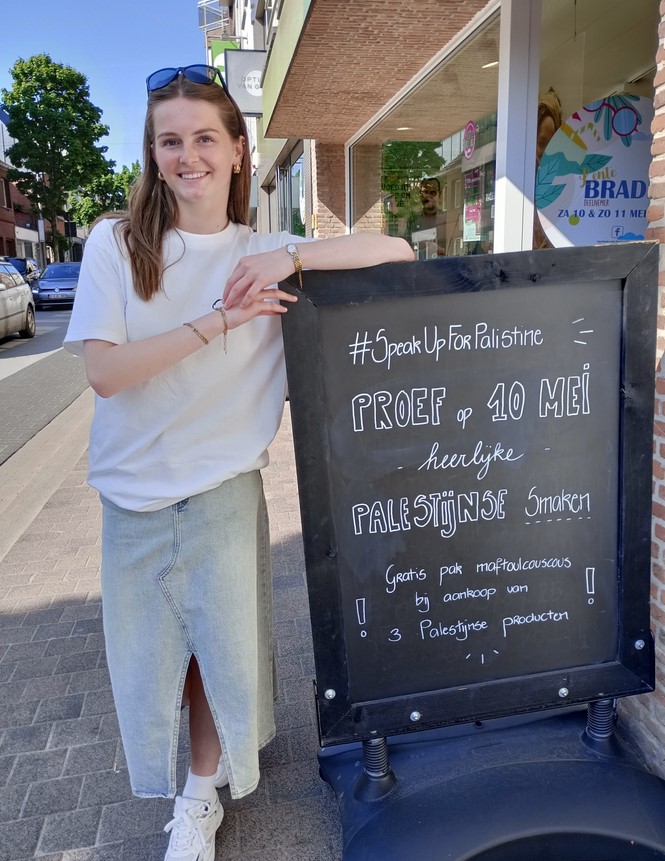 OPTI
VAN G
Lente
BRAD
DEELNEMER
ZA 10 & ZO 11 MEI
#SpeakUpForPalistine
PROEF op 10 MEI
- heerlijke -
PALESTIJNSE Smaken
Gratis pak maftoulcouscous
! bij aankoop van !
3 Palestijnse producten